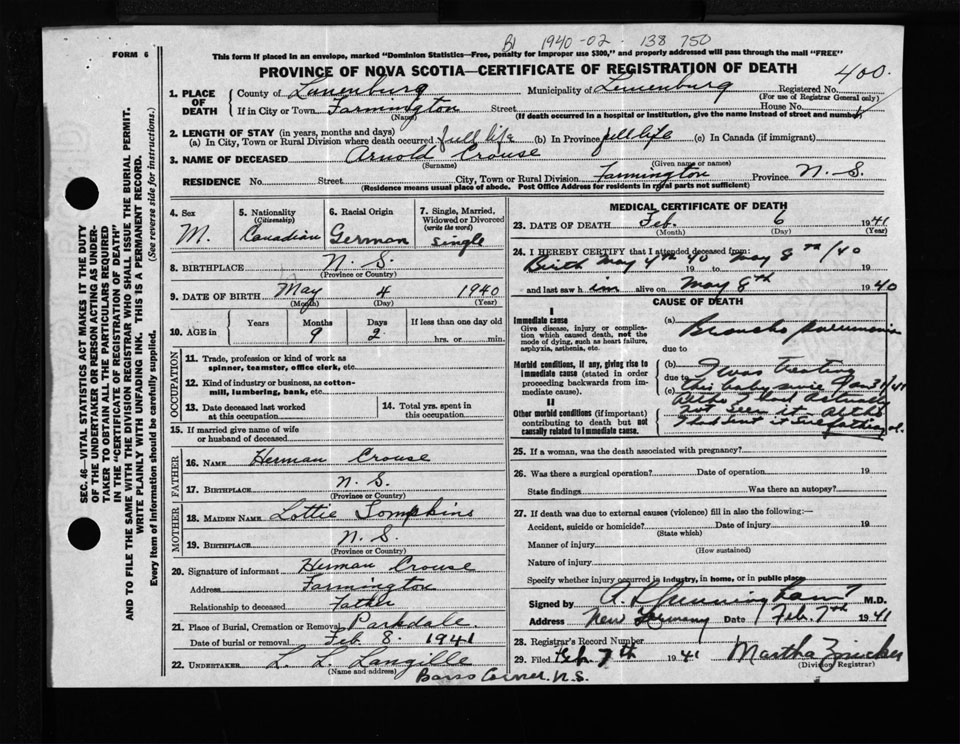 FORM 6
B1 1940-02 - 138 750
This form if placed in an envelope, marked "Dominion Statistics—Free, penalty for improper use $300," and properly addressed will pass through the mail "FREE"
PROVINCE OF NOVA SCOTIA—CERTIFICATE OF REGISTRATION OF DEATH
400.
1. PLACE OF DEATH
County of Lunenburg Municipality of Lunenburg Registered No.
(For use of Registrar General only)
If in City or Town Farmington Street House No.
(Name) (If death occurred in a hospital or institution, give the name instead of street and number)
2. LENGTH OF STAY (in years, months and days)
(a) In City, Town or Rural Division where death occurred full life (b) In Province full life (c) In Canada (if immigrant)
3. NAME OF DECEASED Arnold Crouse
(Surname) (Given name or names)
RESIDENCE No. Street City, Town or Rural Division Farmington Province N. S.
(Residence means usual place of abode. Post Office Address for residents in rural parts not sufficient)
4. Sex
M.
5. Nationality
(Citizenship)
Canadian
6. Racial Origin
German
7. Single, Married, Widowed or Divorced
(write the word)
single
8. BIRTHPLACE N. S.
(Province or Country)
9. DATE OF BIRTH May 4 1940
(Month) (Day) (Year)
10. AGE in
Years Months Days If less than one day old
9 2 hrs. or min.
OCCUPATION
11. Trade, profession or kind of work as
spinner, teamster, office clerk, etc.
12. Kind of industry or business, as cotton-
mill, lumbering, bank, etc.
13. Date deceased last worked
at this occupation
14. Total yrs. spent in
this occupation
15. If married give name of wife
or husband of deceased
FATHER
16. NAME Herman Crouse
17. BIRTHPLACE N. S.
(Province or Country)
MOTHER
18. MAIDEN NAME Lottie Tompkins
19. BIRTHPLACE N. S.
(Province or Country)
20. Signature of informant Herman Crouse
Address Farmington
Relationship to deceased Father
21. Place of Burial, Cremation or Removal Parkdale
Date of burial or removal Feb. 8. 1941
22. UNDERTAKER L. L. Langille
(Name and address)
Barss Corner, N.S.
MEDICAL CERTIFICATE OF DEATH
23. DATE OF DEATH Feb. 6 1941
(Month) (Day) (Year)
24. I HEREBY CERTIFY that I attended deceased from:
Birth May 4th 40 19 to May 8th/40 19
and last saw him alive on May 8th 1940
CAUSE OF DEATH
I
Immediate cause
Give disease, injury or complica-
tion which caused death, not the
mode of dying, such as heart failure,
asphyxia, asthenia, etc.
(a) Broncho pneumonia
due to
Morbid conditions, if any, giving rise to
immediate cause (stated in order
proceeding backwards from im-
mediate cause).
(b) I was treating
due to this baby since Jan 31/41
(c) altho I had actually
not seen it altho
II
Other morbid conditions (if important)
contributing to death but not
causally related to immediate cause.
I had sent it
25. If a woman, was the death associated with pregnancy?
26. Was there a surgical operation? Date of operation 19
State findings Was there an autopsy?
27. If death was due to external causes (violence) fill in also the following:—
Accident, suicide or homicide? Date of injury 19
(State which)
Manner of injury
(How sustained)
Nature of injury
Specify whether injury occurred in industry, in home, or in public place
Signed by M.D.
Address New Germany Date Feb. 7th 1941
28. Registrar's Record Number
29. Filed Feb. 7th 1941 Martha Zwicker
(Division Registrar)
SEC. 46—VITAL STATISTICS ACT MAKES IT THE DUTY
OF THE UNDERTAKER OR PERSON ACTING AS UNDER-
TAKER TO OBTAIN ALL THE PARTICULARS REQUIRED
IN THE "CERTIFICATE OF REGISTRATION OF DEATH"
AND TO FILE THE SAME WITH THE DIVISION REGISTRAR WHO SHALL ISSUE THE BURIAL PERMIT.
WRITE PLAINLY WITH UNFADING INK. THIS IS A PERMANENT RECORD.
Every item of information should be carefully supplied. (See reverse side for instructions.)